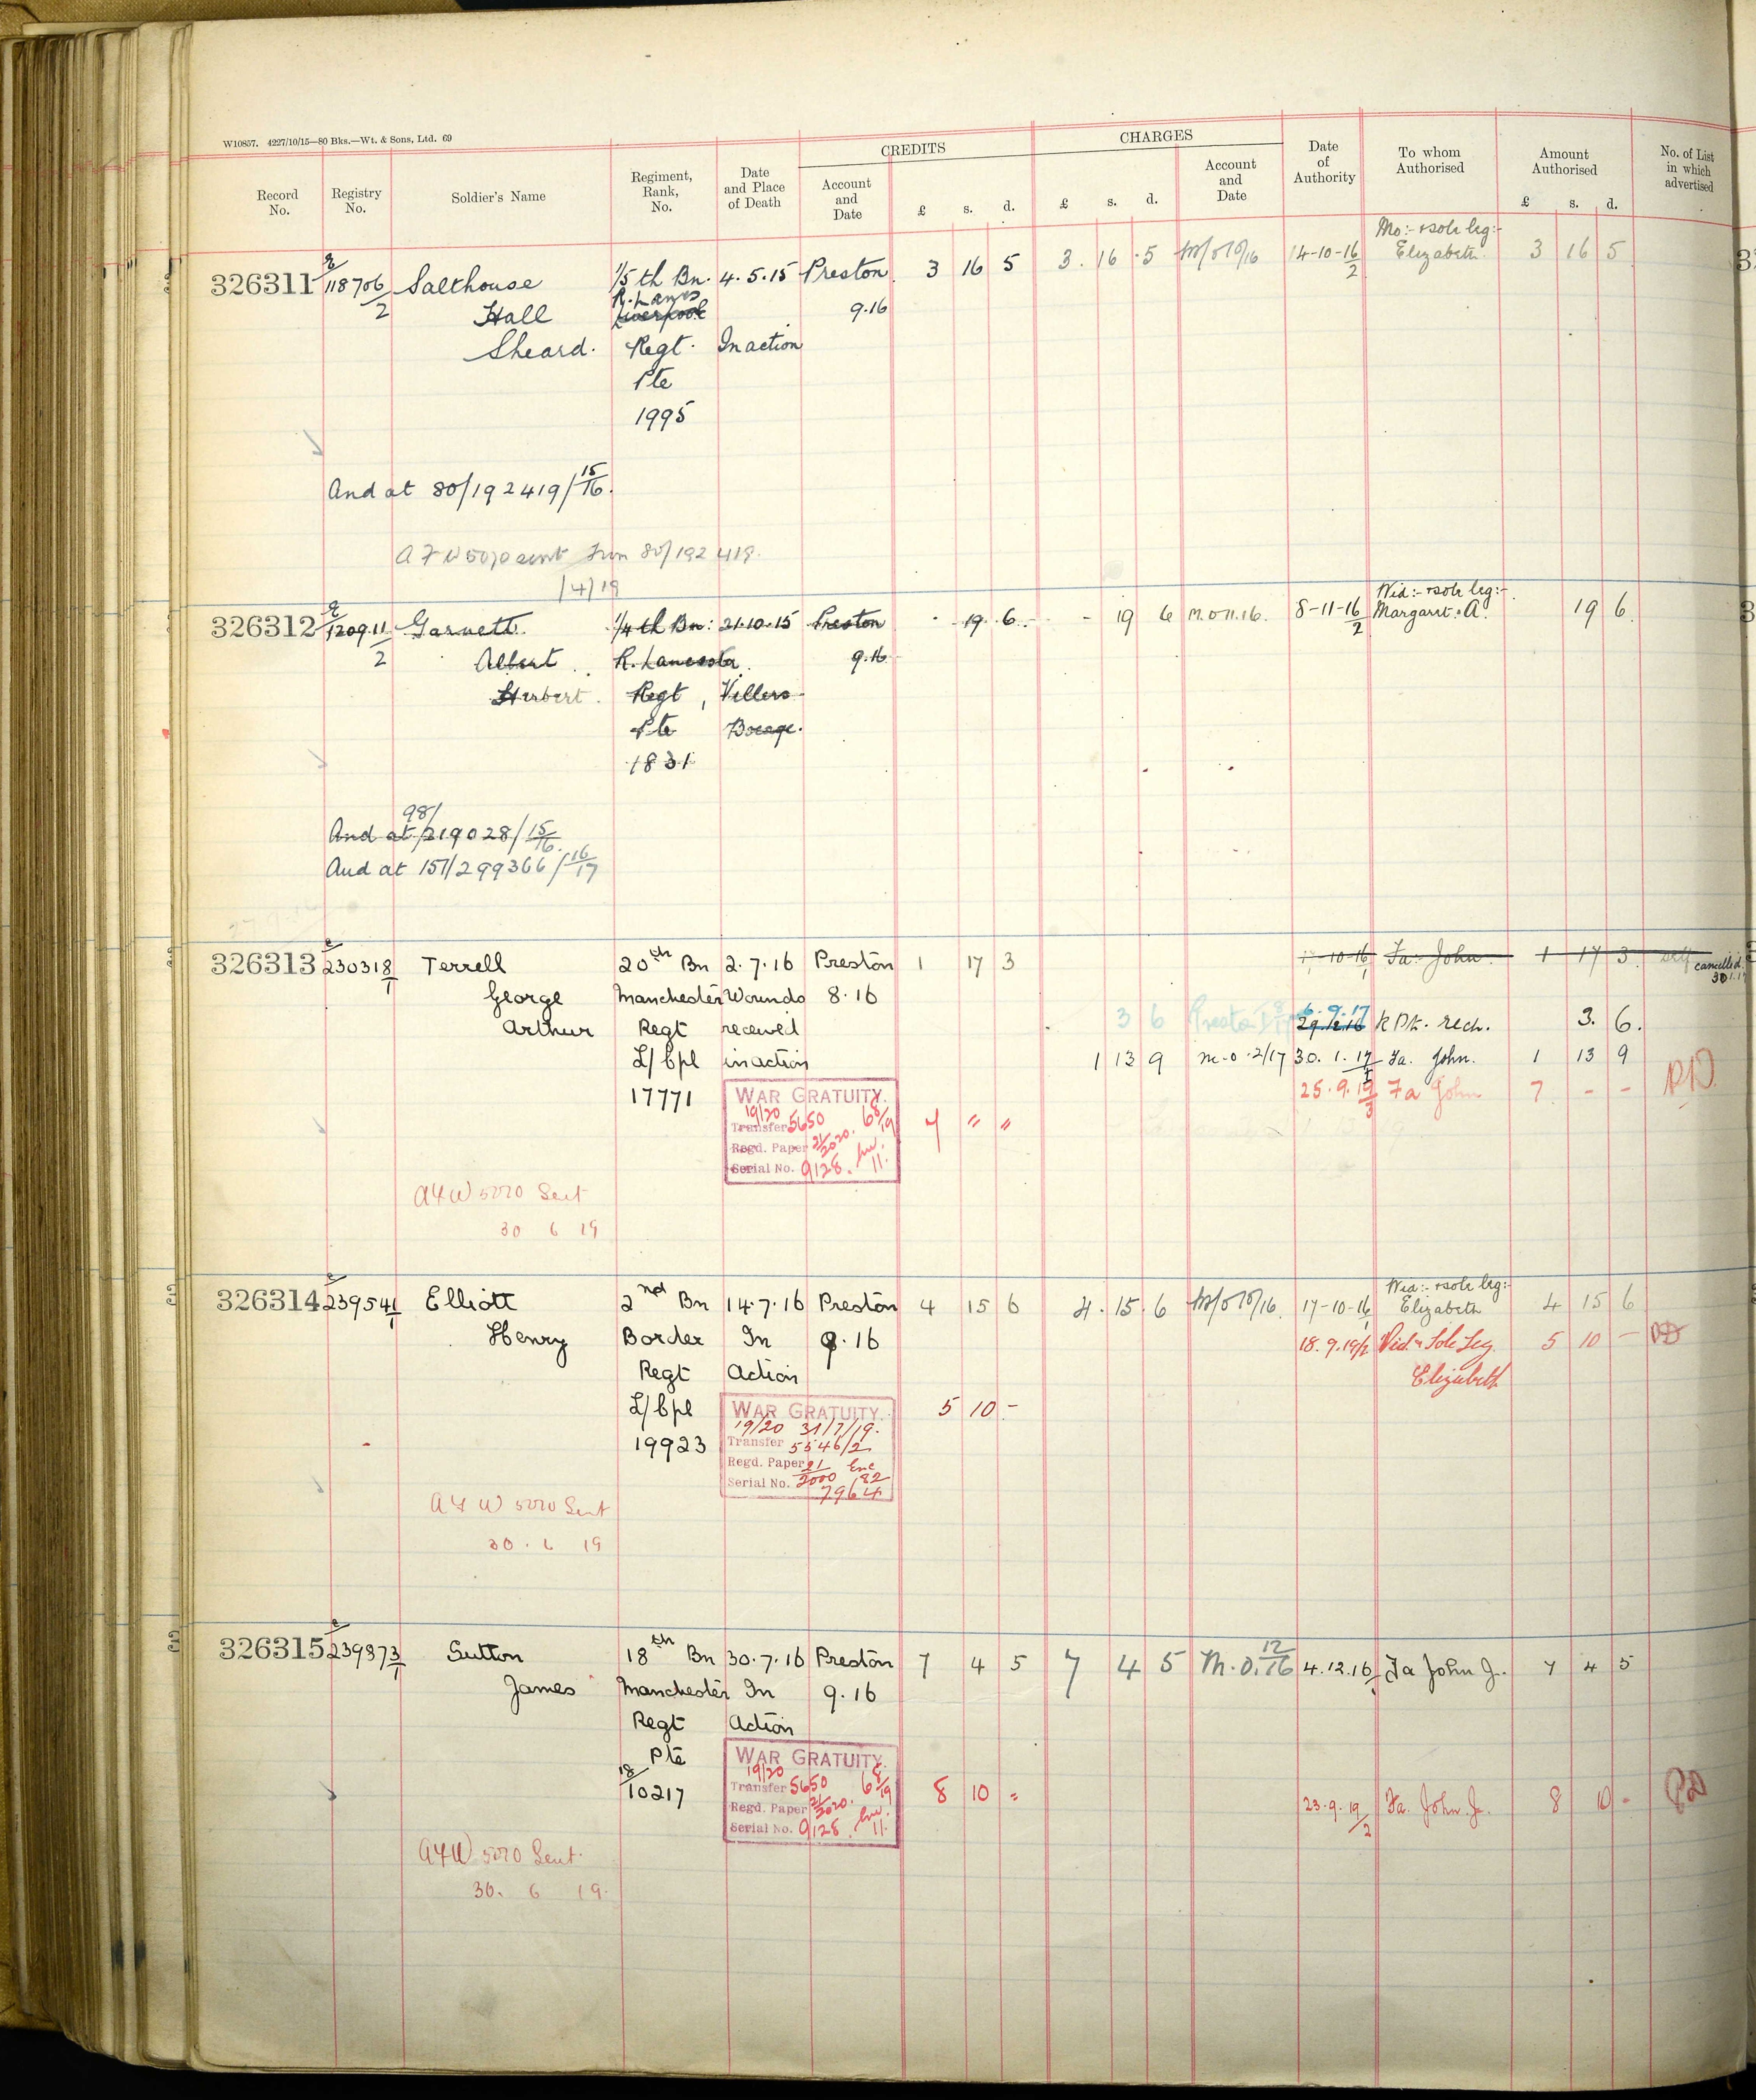 W10857. 4227/10/15—80 Bks.—Wt. & Sons, Ltd. 69
CREDITS CHARGES
Record No. Registry No. Soldier's Name Regiment, Rank, No. Date and Place of Death Account and Date £ s. d. £ s. d. Account and Date Date of Authority To whom Authorised Amount Authorised £ s. d. No. of List in which advertised
Mo:- & sole leg:-
326311 118706/2 Salthouse 1/5th Bn. 4.5.15 Preston 3 16 5 3. 16 .5 14-10-16/2 Elizabeth 3 16 5
Hall R. Lancs Liverpool 9.16
Sheard. Regt. In action
Pte
1995
And at 80/192419/15/16.
80/192419.
/4/19
Wid:- & sole leg:-
326312 120911/2 Garnett 1/4th Bn: 21.10.15 Preston - 19 6 - 19 6 M.O 11.16. 8-11-16/2 Margaret. A. 19 6
Albert R. Lancaster 9.16
Herbert Regt, Villers
Pte Bocage.
1831
98/
And at 219028/15/16.
And at 157/299366/16/17
326313 230318/1 Terrell 20th Bn 2.7.16 Preston 1 17 3 10-16 Fa: John 1 17 3 cancelled
George Manchester Wounds 8.16
Arthur Regt received 3 6 Preston 6.9.17 29.12.16 R Pk. rech. 3. 6.
L/Cpl in action 1 13 9 m-o-2/17 30.1.17 Fa. John. 1 13 9
17771 WAR GRATUITY. 25.9.19/3 Fa John 7 - -
19/20
Transfer 5650 6/8/19 7 " "
Regd. Paper 21/2020.
Serial No. 9128. 11.
AFW 5070 Sent
30 6 19
Wid:- & sole leg:-
326314 239541/1 Elliott 2nd Bn 14.7.16 Preston 4 15 6 4. 15. 6 17-10-16/1 Elizabeth 4 15 6
Henry Border In 9.16 18.9.19/2 Wid & Sole Leg 5 10 -
Regt Action Elizabeth
L/Cpl WAR GRATUITY. 5 10 -
19/20 31/7/19.
19923 Transfer 5546/2
Regd. Paper 21/2000
Serial No. 7964
AFW 5070 Sent
30. 6 19
326315 239873/1 Sutton 18th Bn 30.7.16 Preston 7 4 5 7 4 5 M.O. 12/16 4.12.16/1 Fa John J. 7 4 5
James Manchester In 9.16
Regt Action
Pte WAR GRATUITY.
19/20
18/10217 Transfer 5650 6/8/19 8 10 - 23.9.19/2 Fa. John J. 8 10 -
Regd. Paper 21/2020.
Serial No. 9128. 11.
AFW 5070 Sent.
30. 6 19.